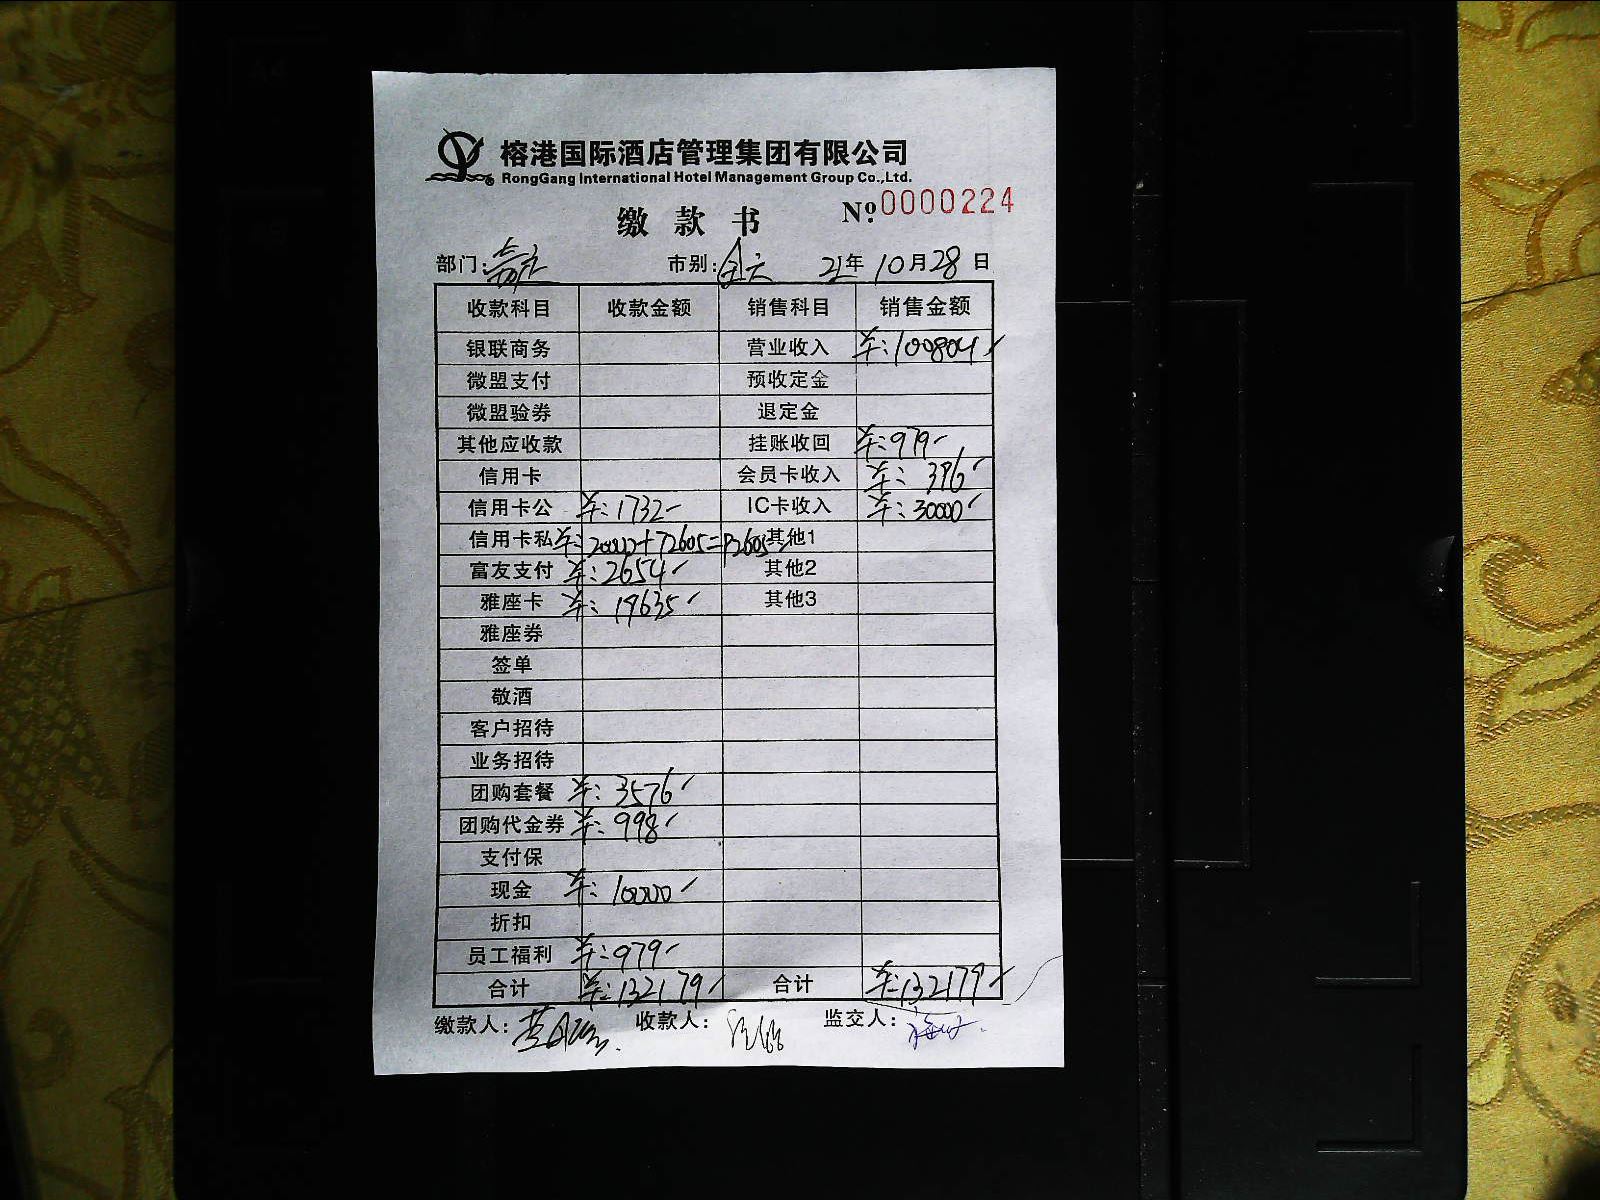 榕港国际酒店管理集团有限公司
RongGang International Hotel Management Group Co.,Ltd.
缴款书 №0000224
部门: 市别: 21年10月28日
收款科目 收款金额 销售科目 销售金额
银联商务 营业收入 ¥:100804
微盟支付 预收定金
微盟验券 退定金
其他应收款 挂账收回 ¥:979
信用卡 会员卡收入 ¥:396
信用卡公 ¥:1732 IC卡收入 ¥:30000
信用卡私 ¥:20000+72605=92605 其他1
富友支付 ¥:2654 其他2
雅座卡 ¥:19635 其他3
雅座券
签单
敬酒
客户招待
业务招待
团购套餐 ¥:3576
团购代金券 ¥:998
支付保
现金 ¥:10000
折扣
员工福利 ¥:979
合计 ¥:132179 合计 ¥:132179
缴款人: 收款人: 监交人: